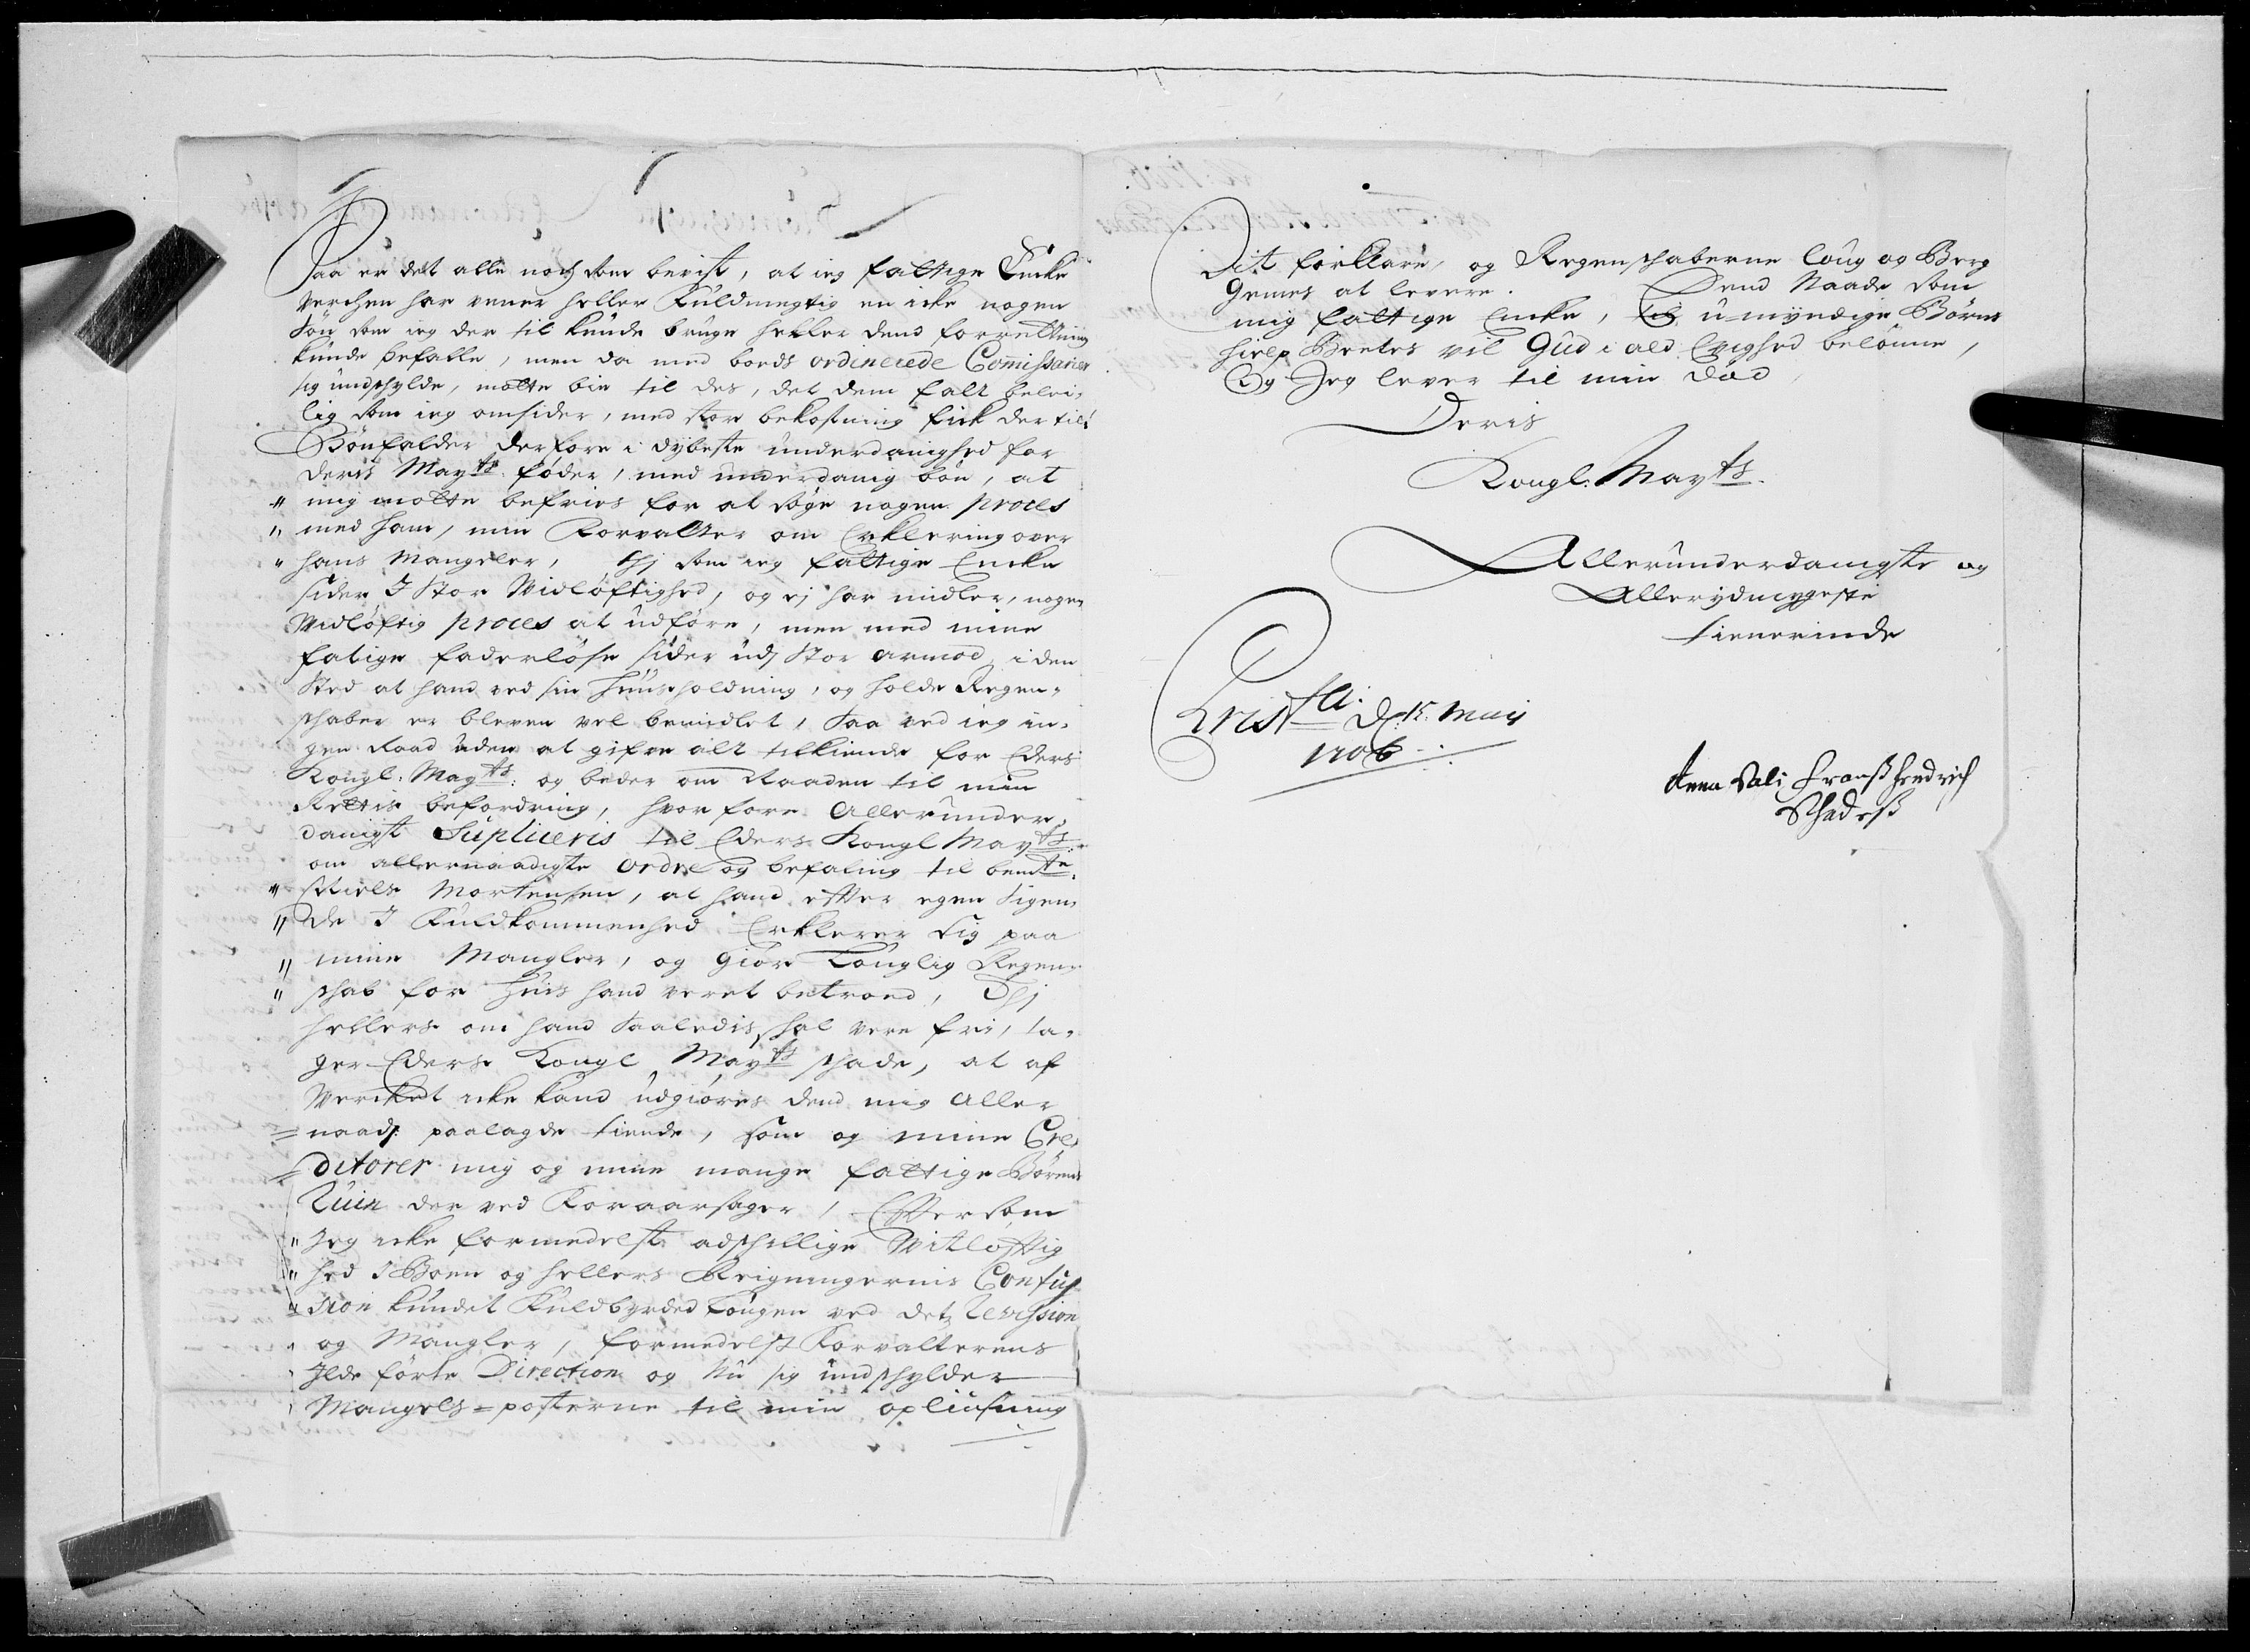 Saa er det alle noch som bevist, at ieg fattige Encke
verchen har vener heller Fuldmegtig en icke nogen
Søn som ieg der til kunde bruge heller dend forretning
kunde befalle, men da med bords ordinerede Comissarier
sig undschylde, motte bie til des, det dem falt belei-
lig som ieg omsider, med stor bekostning fick der til
Bønfalder derfore i dybeste underdanighed for
Deris Mayts føder, med underdanig bøn, at
mig motte befries for at søge nogen proces
med ham, min Forvalter om Erklering over
hans Mangeler, thj som ieg fattige Encke
sider I Stor Vidløftighed, og ej har midler, nogen
Vidløftig proces at udføre, men med mine
fatige faderløse sider udj Stor armod, i den
Sted at hand ved sin Huusholdning, og holde Regen-
schaber er bleven vel bemidlet, saa ved ieg in-
gen Raad uden at gifve alt tilkiende for Eders
Kongl: Mayts: og beder om Naaden til min
Rettis befordring, hvorfore Allerunder-
danigst Supliceris til Eders Kongl Mayts:
om allernaadigste ordre og befaling til bemte
Niels Mortensen, at hand efter egen Sigen-
de I Fuldkommenhed Erklerer sig paa
mine Mangler, og giør Louglig Regen-
schab for huis hand veret betroed, Thj
hellers om hand saaledis schal vere fri, ta-
ger Eders Kongl Mayts schade, at af
Vercket icke kand udgiøres dend mig Aller
naadj: paalagde tiende, som og mine Cre-
ditorer mig og mine mange fattige Børns
Ruin der ved Foraarsager, Efftersom
Jeg icke formedelst adschillige Vitløfftig
hed I Boen og hellers Reigningernis Confus-
sion kundet Fuldbyrded Lougen ved det Revission
og Mangler, formedelst Forvalterens
Ilde førte Direction og Nu sig undschylder
Mangels-posterne til min opliusning
Dit forklare, og Regenschaberne Loug og Berg
Gemes at levere. Dend Naade som
mig fattige Encke, og u-myndige Børn
hielp Beetes vil Gud i ald Evighed belønne,
Og Jeg lever til min død
Deris
Kongl: Mayts.
Allerunderdanigste og
Allerydmygeste
tienerinde
Christ d: 15 Maij
1706
Anna Sali Franss Hendrich
Schadess